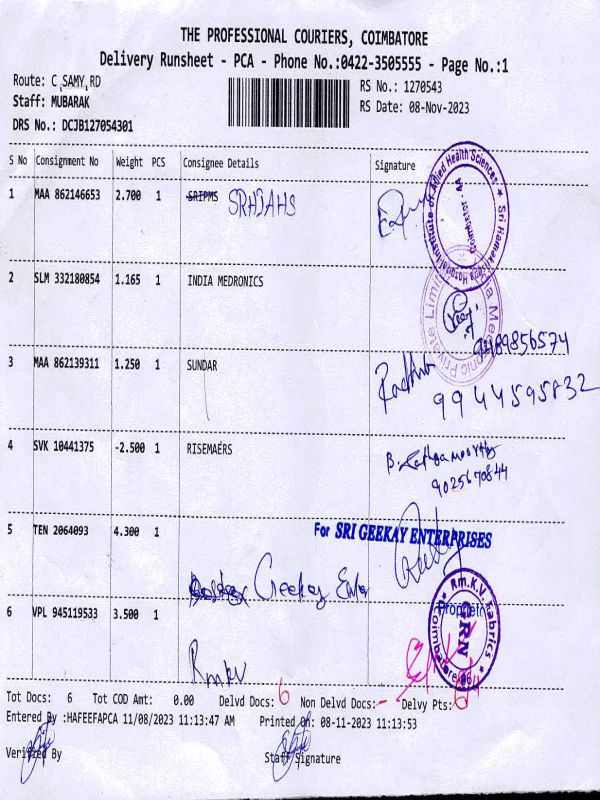 THE PROFESSIONAL COURIERS, COIMBATORE
Delivery Runsheet - PCA - Phone No.:0422-3505555 - Page No.:1
Route: C SAMY RD
RS No.: 1270543
Staff: MUBARAK
RS Date: 08-Nov-2023
DRS No.: DCJB127054301
S No Consignment No Weight PCS Consignee Details Signature
1 MAA 862146653 2.700 1 SRIPMS SRHIAHS
2 SLM 332180854 1.165 1 INDIA MEDRONICS
9489856574
3 MAA 862139311 1.250 1 SUNDAR Radha
9944595832
4 SVK 10441375 -2.500 1 RISEMAERS
9025670844
5 TEN 2064093 4.300 1 For SRI GEEKAY ENTERPRISES
Geekay Enter
6 VPL 945119533 3.500 1
Rmkv
Rm.K.V. Fabrics
GRN
Coimbatore
Tot Docs: 6 Tot COD Amt: 0.00 Delvd Docs: 6 Non Delvd Docs: - Delvy Pts: 6
Entered By :HAFEEFAPCA 11/08/2023 11:13:47 AM Printed On: 08-11-2023 11:13:53
Verified By Staff Signature